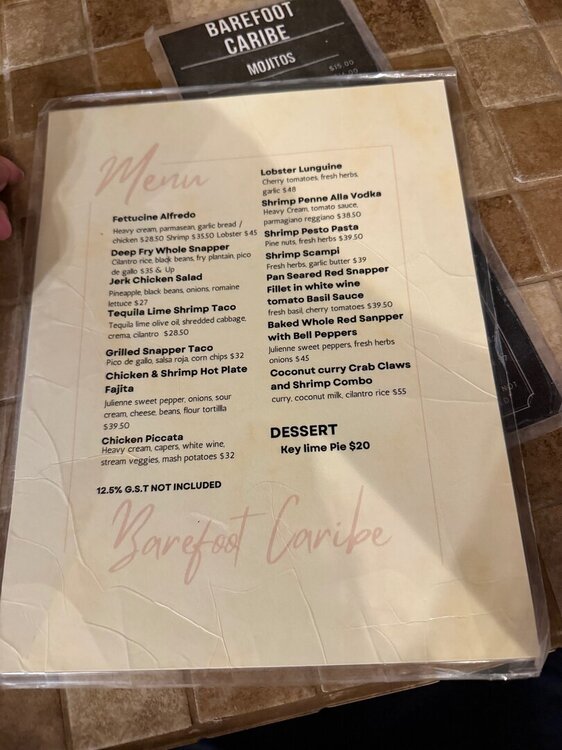 BAREFOOT
CARIBE
MOJITOS
$15.00
Menu
Fettucine Alfredo
Heavy cream, parmasean, garlic bread /
chicken $28.50 Shrimp $35.50 Lobster $45
Deep Fry Whole Snapper
Cilantro rice, black beans, fry plantain, pico
de gallo $35 & Up
Jerk Chicken Salad
Pineapple, black beans, onions, romaine
lettuce $27
Tequila Lime Shrimp Taco
Tequila lime olive oil, shredded cabbage,
crema, cilantro $28.50
Grilled Snapper Taco
Pico de gallo, salsa roja, corn chips $32
Chicken & Shrimp Hot Plate
Fajita
Julienne sweet pepper, onions, sour
cream, cheese, beans, flour tortillla
$39.50
Chicken Piccata
Heavy cream, capers, white wine,
stream veggies, mash potatoes $32
12.5% G.S.T NOT INCLUDED
Lobster Lunguine
Cherry tomatoes, fresh herbs,
garlic $48
Shrimp Penne Alla Vodka
Heavy Cream, tomato sauce,
parmagiano reggiano $38.50
Shrimp Pesto Pasta
Pine nuts, fresh herbs $39.50
Shrimp Scampi
Fresh herbs, garlic butter $39
Pan Seared Red Snapper
Fillet in white wine
tomato Basil Sauce
fresh basil, cherry tomatoes $39.50
Baked Whole Red Sanpper
with Bell Peppers
Julienne sweet peppers, fresh herbs
onions $45
Coconut curry Crab Claws
and Shrimp Combo
curry, coconut milk, cilantro rice $55
DESSERT
Key lime Pie $20
Barefoot Caribe